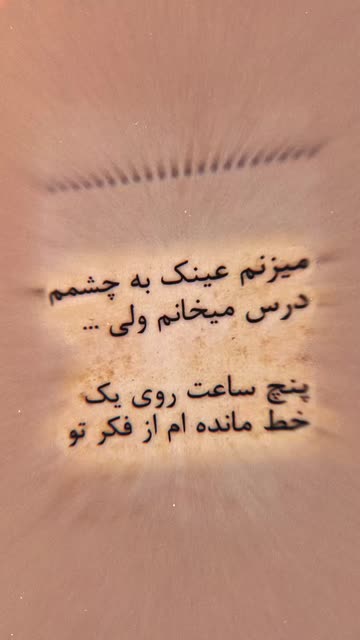 میزنم عینک به چشمم
درس میخانم ولی ...
پنچ ساعت روی یک
خط مانده ام از فکر تو